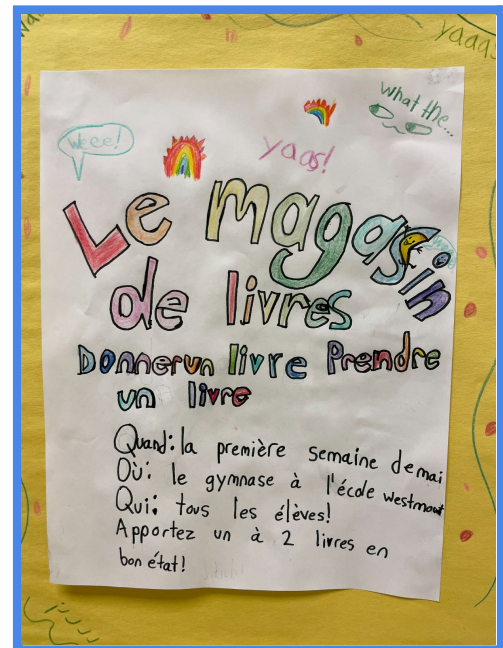 yaas
what the...
Weee!
yaas!
Le magasin
de livres
Donner un livre Prendre
un livre
Quand: la première semaine de mai
Où: le gymnase à l'école westmount
Qui: tous les élèves!
Apportez un à 2 livres en
bon état!